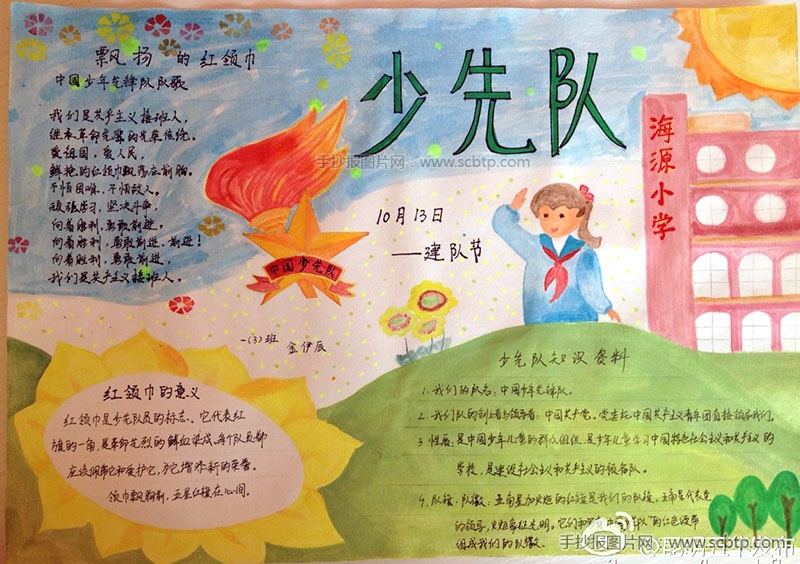 飘扬的红领巾
中国少年先锋队队歌
我们是共产主义接班人,
继承革命先辈的光荣传统,
爱祖国,爱人民,
鲜艳的红领巾飘荡在前胸。
不怕困难,不怕敌人,
顽强学习,坚决斗争,
向着胜利,勇敢前进,
向着胜利,勇敢前进,前进!
向着胜利,勇敢前进,
我们是共产主义接班人。
少先队
手抄报图片网:www.scbtp.com
10月13日
——建队节
中国少先队
海源小学
一(3)班
金伊辰
红领巾的意义
红领巾是少先队员的标志。它代表红
旗的一角,是革命先烈的鲜血染成。每个队员都
应该佩带它和爱护它,为它增添新的荣誉。
领巾飘胸前,五星红旗在心间。
少先队知识资料
1.我们的队名:中国少年先锋队。
2.我们队的创立者与领导者:中国共产党。党委托中国共产主义青年团直接领导我们。
3.性质:是中国少年儿童的群众组织,是少年儿童学习中国特色社会主义和共产主义的
学校,是建设社会主义和共产主义的预备队。
4.队旗、队徽:五角星加火炬的红旗是我们的队旗。五角星代表党
的领导,火炬象征光明。它们和写有"中国少先队"的红色绶带
组成我们的队徽。
手抄报图片网:www.scbtp.com